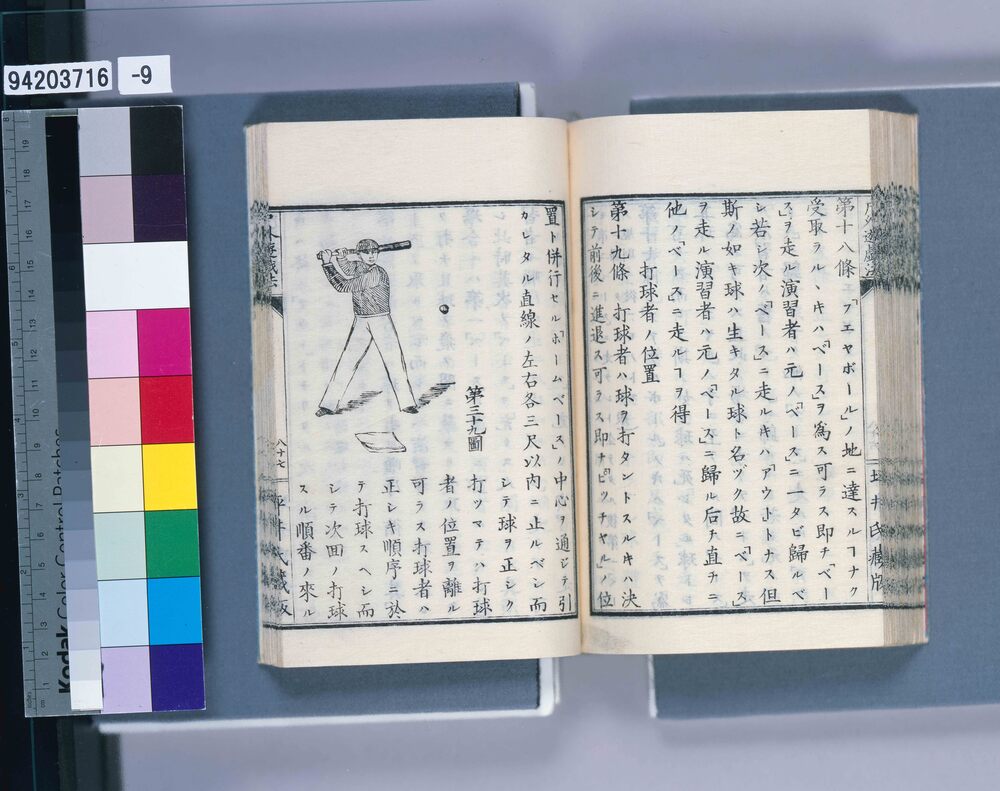 94203716
-9
第十八條 「フエヤボール」ノ地ニ達スルヿナク
受取ラル、キハ「ベース」ヲ爲ス可ラス即チ「ベー
ス」ヲ走ル演習者ハ元ノ「ベース」ニ一タビ歸ルベ
シ若シ次ノ「ベース」ニ走ルキハ「アウト」トナス但
斯ノ如キ球ハ生キタル球ト名ヅク故ニ「ベース」
ヲ走ル演習者ハ元ノ「ベース」ニ歸ル后チ直チニ
他ノ「ベース」ニ走ルヿヲ得
打球者ノ位置
第十九條 打球者ハ球ヲ打タントスルキハ決
シテ前後ニ進退ス可ラス即チ「ピツチヤル」ノ位
坪井氏藏版
置ト併行セル「ホームベース」ノ中心ヲ通ジテ引
カレタル直線ノ左右各三尺以内ニ止ルベシ而
シテ球ヲ正シク
打ツマテハ打球
者ノ位置ヲ離ル
可ラス打球者ハ
正シキ順序ニ於
テ打球スヘシ而
シテ次回ノ打球
スル順番ノ來ル
第三十九圖
戸外遊戯法
八十七
坪井氏藏版
Kodak Color Control Patches